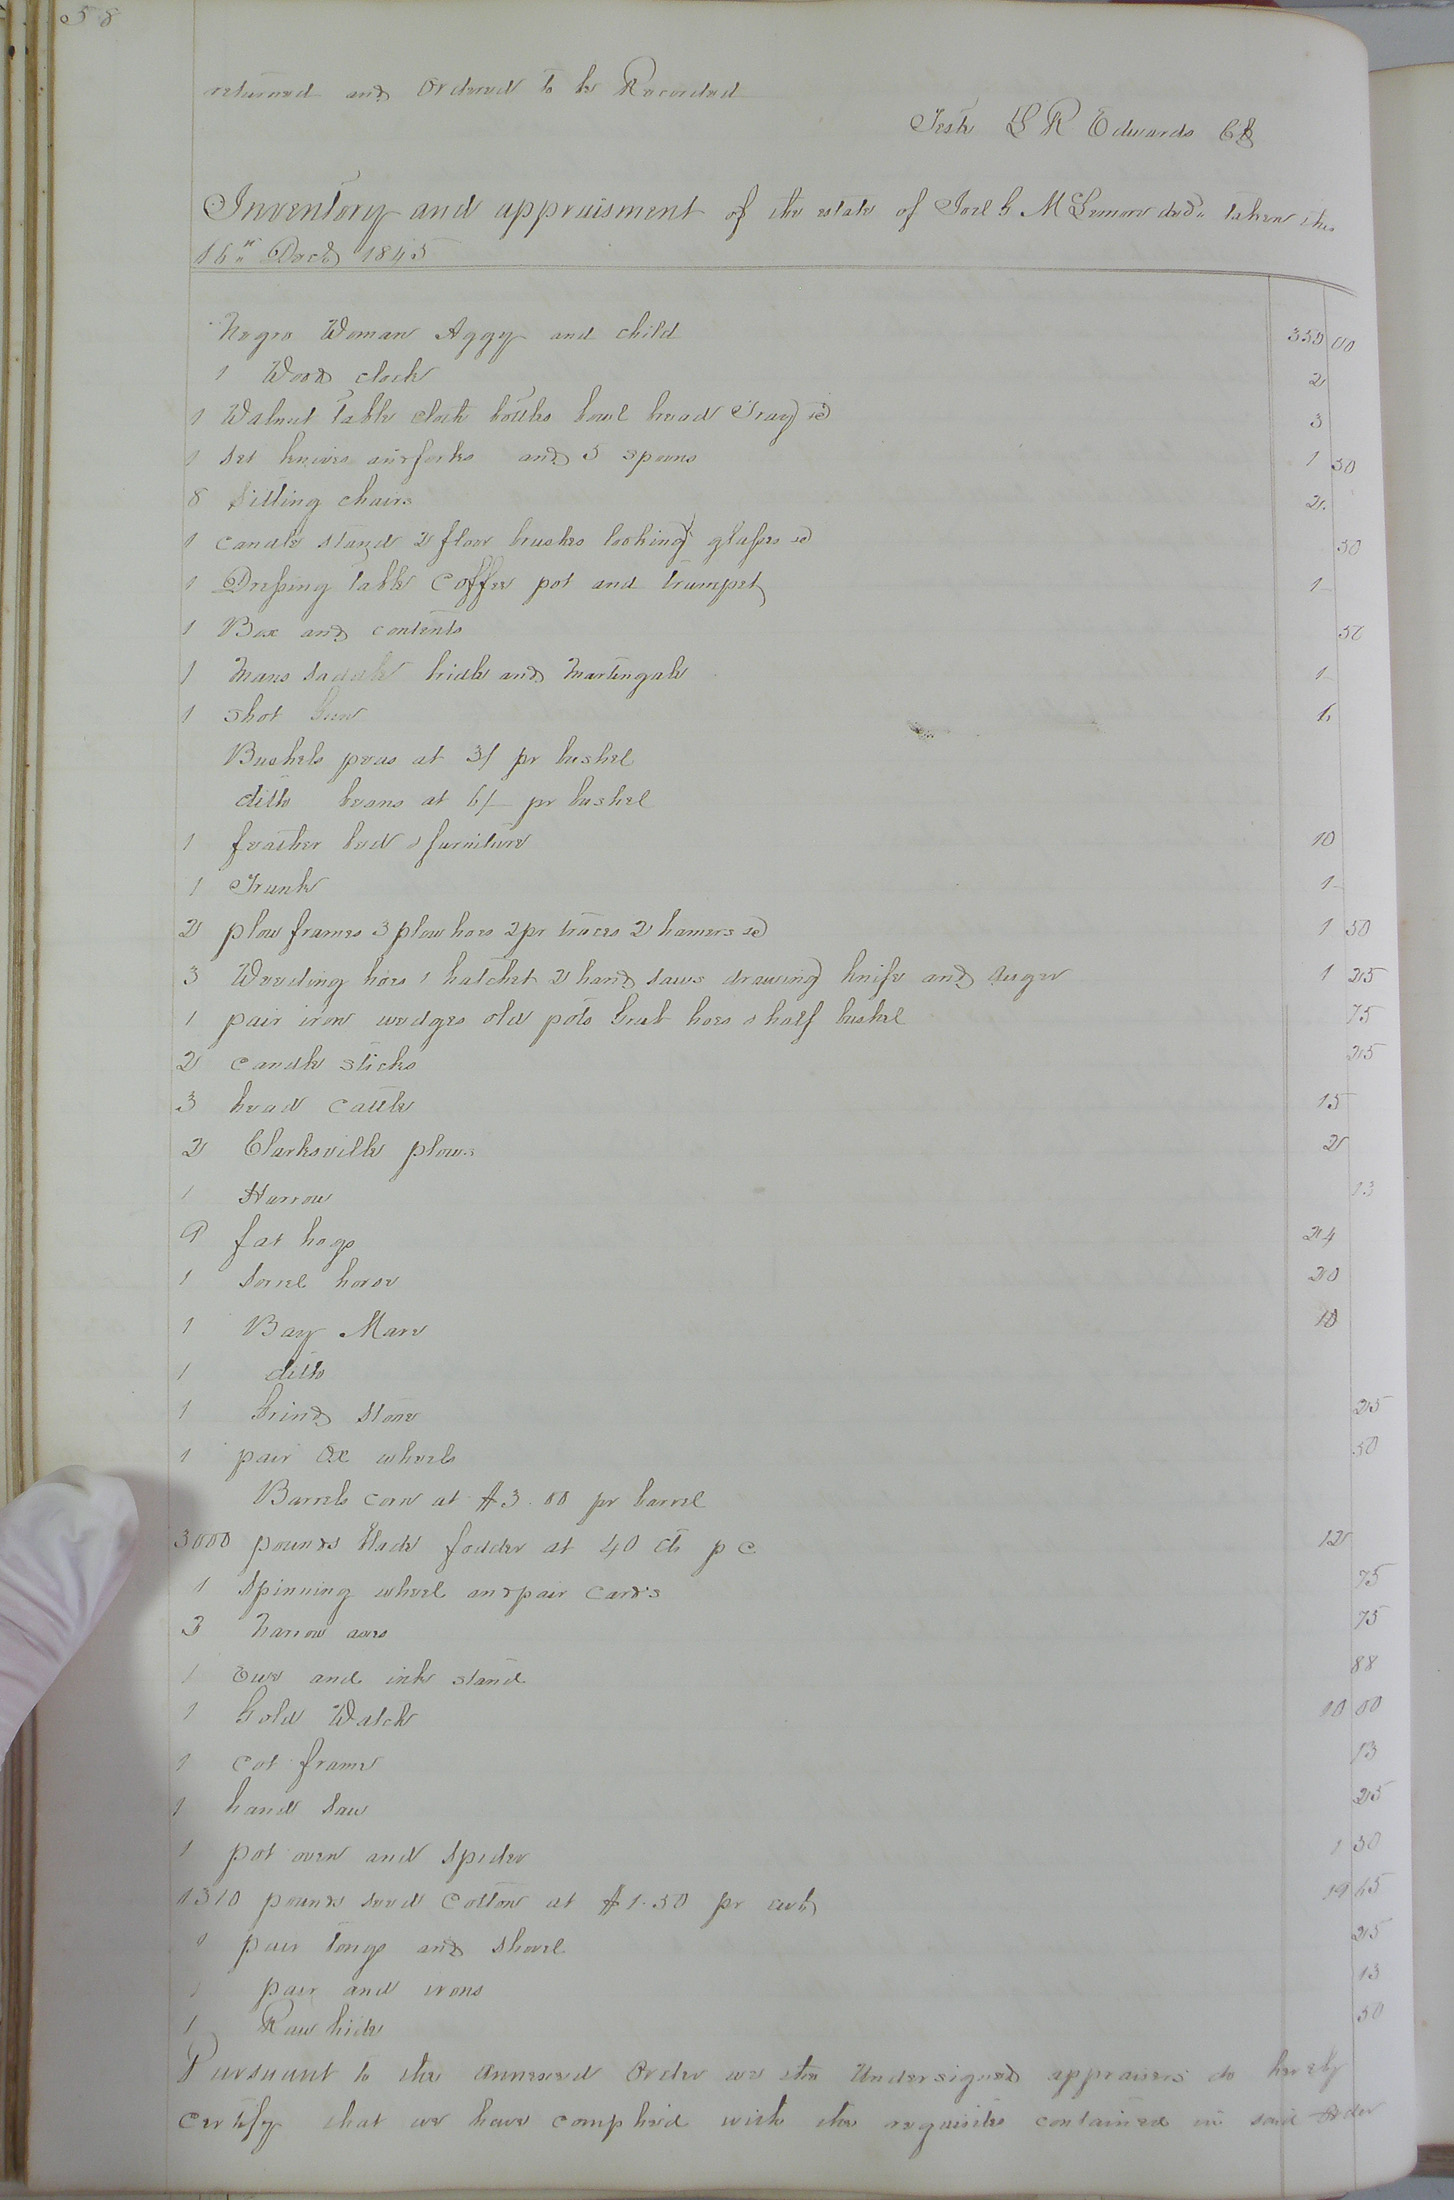 58
returned and Ordered to be Recorded
Teste L R Edwards Clk
Inventory and appraisment of the estate of Joel G McLemore decd. taken the
16th Decr 1845
Negro Woman Aggy and child 350 00
1 Wood clock 2
1 Walnut table cloth bottles bowl bread Tray &c 3
1 Set knives and forks and 5 spoons 1 50
8 Sitting chairs 2
1 candle stand 2 floor brushes looking glasses &c 50
1 Dressing table Coffee pot and trumpet 1
1 Box and contents 50
1 Mans Saddle bridle and Martingale 1
1 Shot Gun 6
Bushels peas at 3/ pr bushel
ditto beans at 6/ pr bushel
1 feather bed & furniture 10
1 Trunk 1
2 plow frames 3 plow hoes 2 pr traces 2 hamers &c 1 50
3 Weeding hoes 1 hatchet 2 hand saws drawing knife and Auger 1 25
1 pair iron wedges old pots Grub hoes & half bushel 75
2 candle sticks 25
3 head Cattle 15
2 Clarksville plows 2
1 Harrow 13
9 fat hogs 24
1 Sorrel horse 20
1 Bay Mare 10
1 ditto
1 Grind Stone 25
1 pair Ox wheels 50
Barrels corn at $3.00 pr barrel
3000 pounds blade fodder at 40 cts p C 12
1 Spinning wheel and pair Cards 75
3 Narrow axes 75
1 Ewe and ink stand 88
1 Gold Watch 10 00
1 cot frame 13
1 hand Saw 25
1 pot oven and Spider 1 50
1310 pounds seed Cotton at $1.50 pr cwt 19 65
1 pair tongs and Shovel 25
1 pair and irons 13
1 Raw hide 50
Pursuant to the annexed Order we the Undersigned appraisers do hereby
Certify that we have complied with the requisites contained in said Order